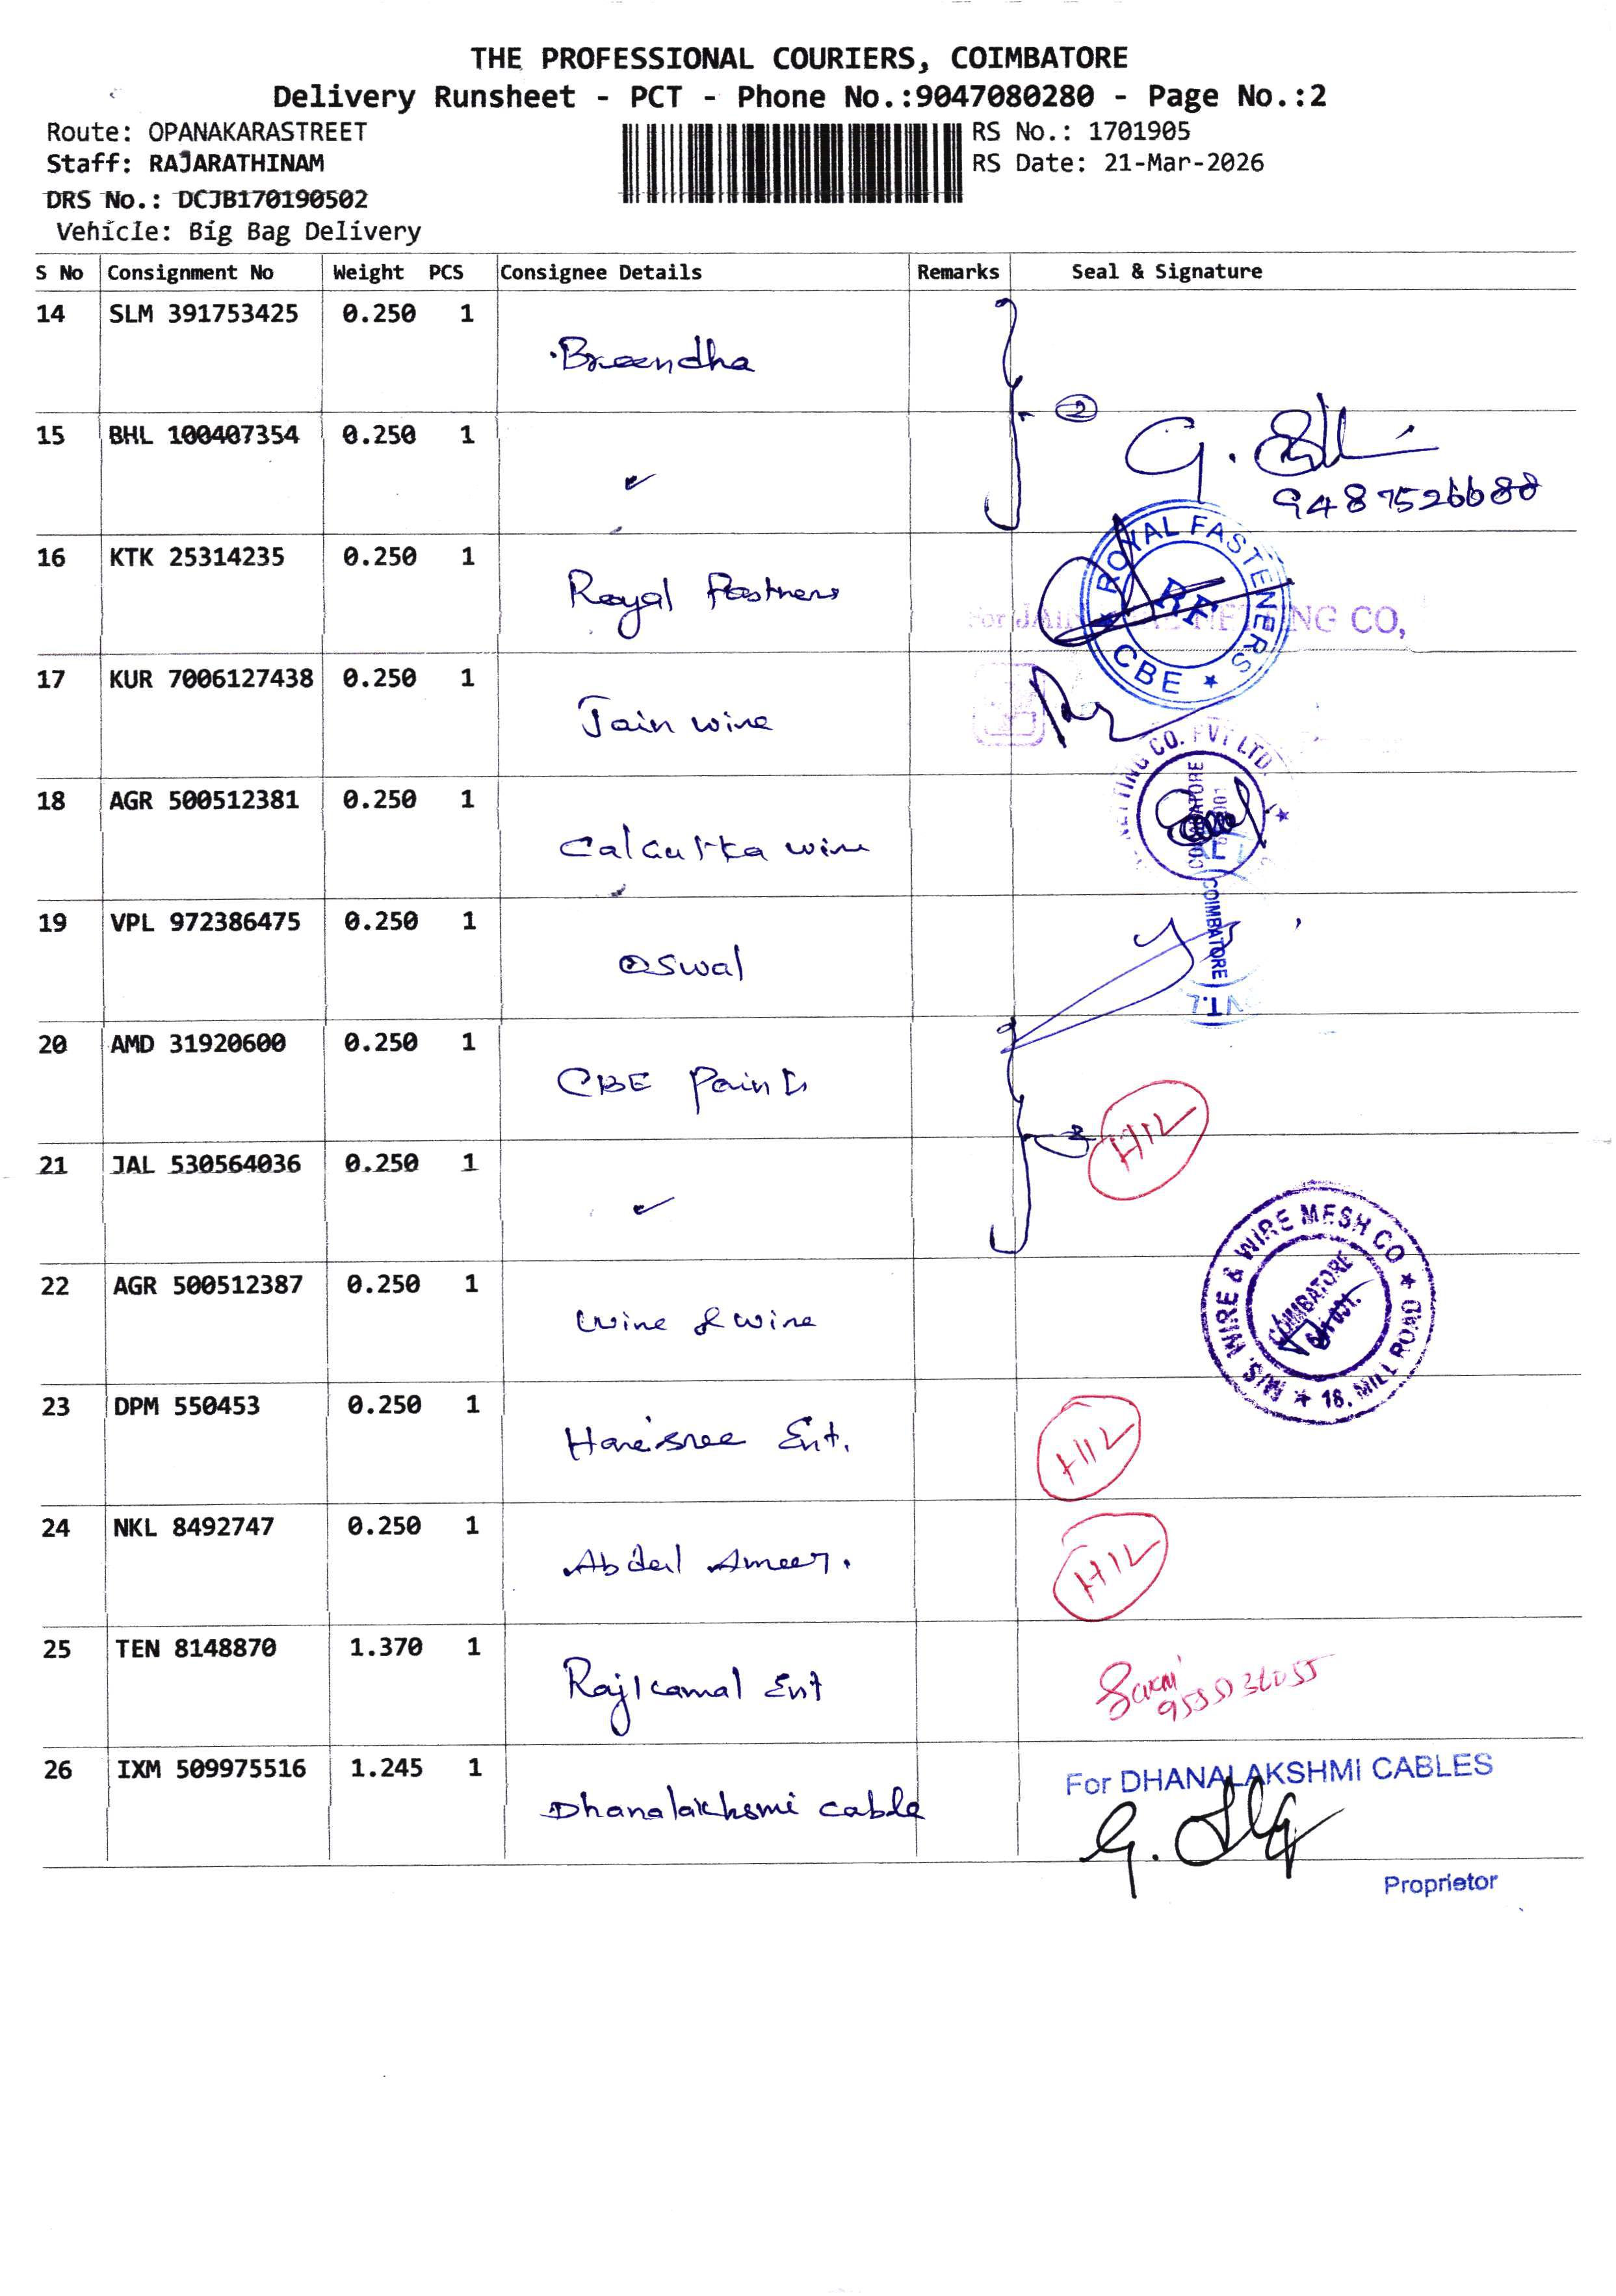 THE PROFESSIONAL COURIERS, COIMBATORE
Delivery Runsheet - PCT - Phone No.:9047080280 - Page No.:2
Route: OPANAKARASTREET
RS No.: 1701905
Staff: RAJARATHINAM
RS Date: 21-Mar-2026
DRS No.: DCJB170190502
Vehicle: Big Bag Delivery
S No Consignment No Weight PCS Consignee Details Remarks Seal & Signature
14 SLM 391753425 0.250 1
Breendha
2
15 BHL 100407354 0.250 1
G.
9487526688
16 KTK 25314235 0.250 1
Royal Fastners
ROYAL FASTENERS
RF
★ CBE ★
For JAIN NETTING CO,
17 KUR 7006127438 0.250 1
Jain wire
NETTING CO. PVT LTD.
COIMBATORE
18 AGR 500512381 0.250 1
Calcutta wire
COIMBATORE
19 VPL 972386475 0.250 1
Oswal
20 AMD 31920600 0.250 1
CBE Paints
3
H12
21 JAL 530564036 0.250 1
22 AGR 500512387 0.250 1
wire & wire
M/S. WIRE & WIRE MESH CO ★ 16, MILL ROAD ★
COIMBATORE
23 DPM 550453 0.250 1
Harisree Ent.
H12
24 NKL 8492747 0.250 1
Abdul Ameer.
H12
25 TEN 8148870 1.370 1
Rajkamal Ent
26 IXM 509975516 1.245 1
Dhanalakhsmi cable
For DHANALAKSHMI CABLES
G.
Proprietor